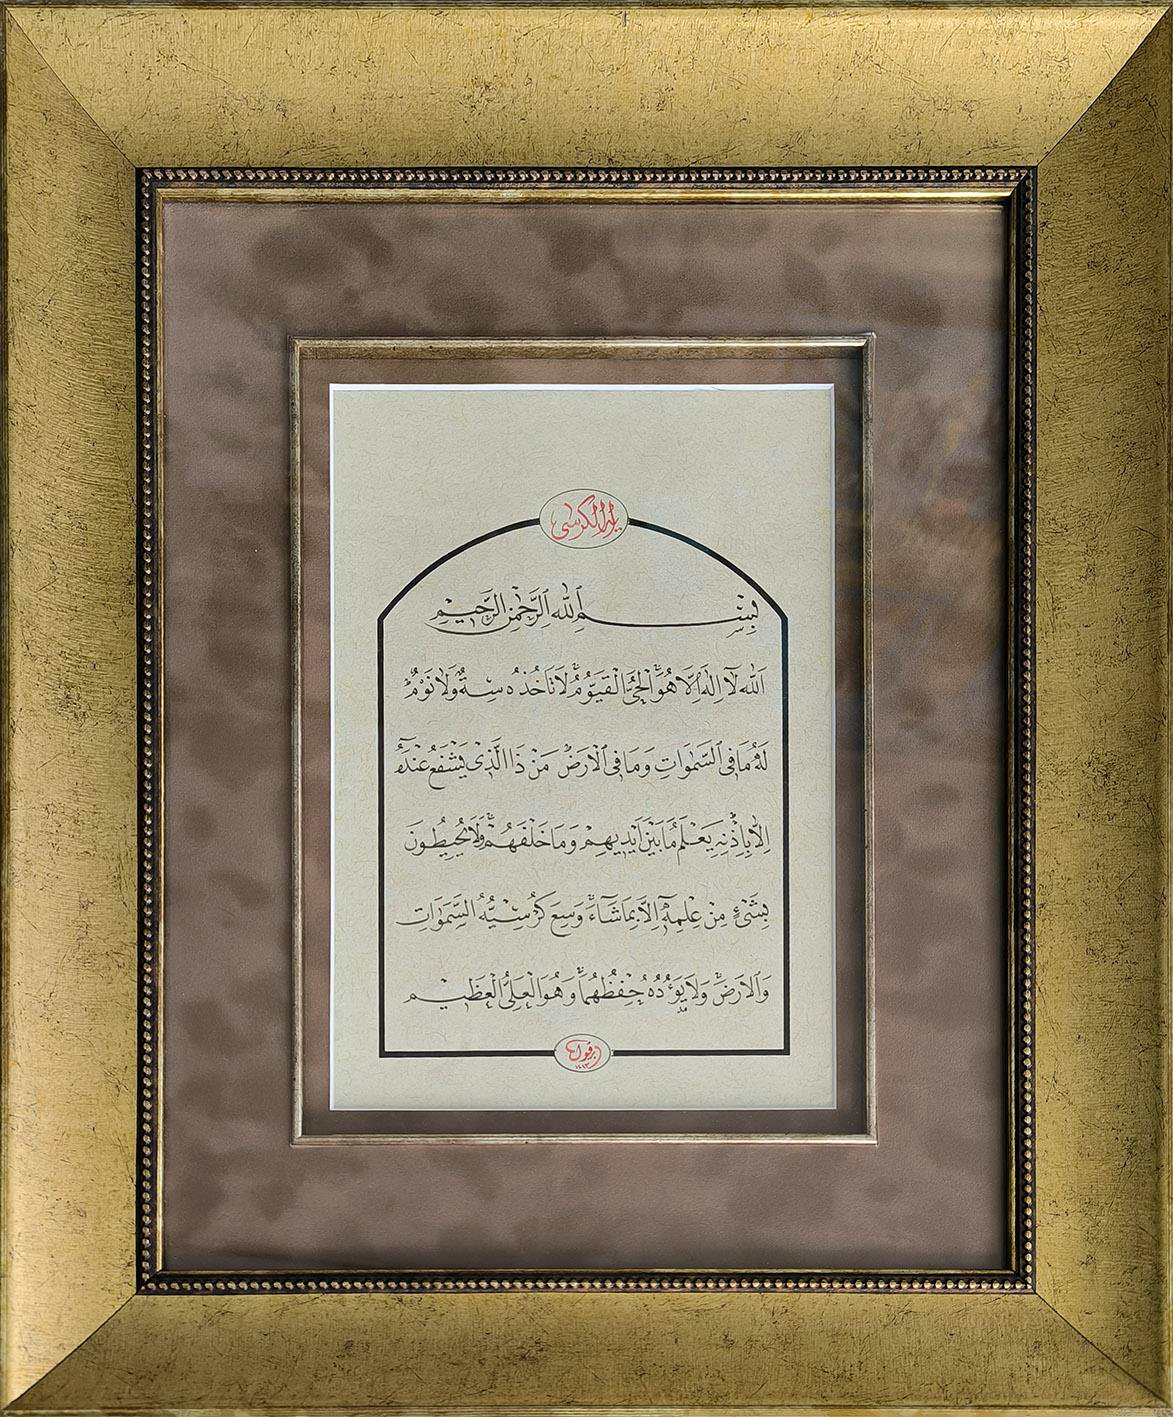 آية الكرسي
بِسْمِ اللّٰهِ الرَّحْمٰنِ الرَّحِيمِ
اَللّٰهُ لَآ اِلٰهَ اِلَّا هُوَ اَلْحَيُّ الْقَيُّومُ لَا تَاْخُذُهُ سِنَةٌ وَلَا نَوْمٌ
لَهُ مَا فِى السَّمٰوَاتِ وَمَا فِى الْاَرْضِ مَنْ ذَا الَّذِى يَشْفَعُ عِنْدَهُٓ
اِلَّا بِاِذْنِهِ يَعْلَمُ مَا بَيْنَ اَيْدِيهِمْ وَمَا خَلْفَهُمْ وَلَا يُحِيطُونَ
بِشَىْءٍ مِنْ عِلْمِهِٓ اِلَّا بِمَا شَآءَ وَسِعَ كُرْسِيُّهُ السَّمٰوَاتِ
وَالْاَرْضَ وَلَا يَؤُدُهُ حِفْظُهُمَا وَهُوَ الْعَلِىُّ الْعَظِيمُ